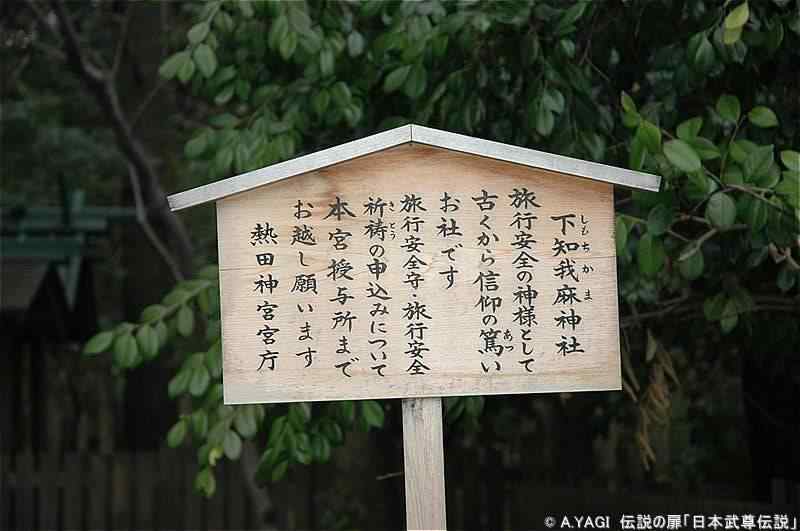 下知我麻神社
しもちかま
旅行安全の神様として
古くから信仰の篤い
あつ
お社です
旅行安全守・旅行安全
祈祷の申込みについて
きとう
本宮授与所まで
お越し願います
熱田神宮宮庁
© A.YAGI 伝説の扉「日本武尊伝説」